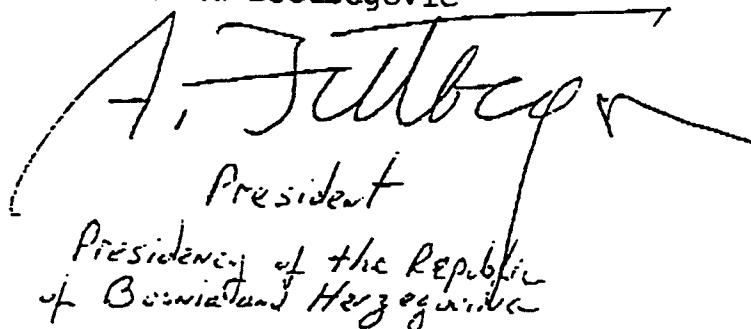 A. Izetbegovic
President
Presidency of the Republic
of Bosnia and Herzegovina